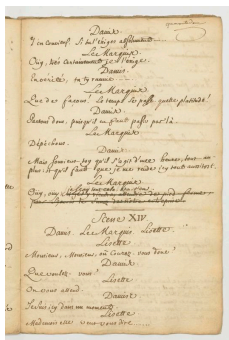 Damis
J'en conviens. Si tu l'exiges absolument...
Le Marquis
Ouy, très certainement je l'exige.
Damis
En vérité, tu t'y
Le Marquis
Que de façons! Le temps se passe, quatre
Damis
Partons donc, puisqu'il en faut passer par là.
Le Marquis
Dépêchons.
Damis
Mais souviens-toy qu'il s'agit d'une heure, tout au
plus; et qu'il faut que je me rende icy tout aussitost.
Le Marquis
Ouy, ouy
Scene XIV
Damis, Le Marquis, Lisette.
Lisette
Monsieur, Monsieur, où Courez-vous donc?
Damis
Que voulez-vous?
Lisette
On vous attend
Damis
Je suis icy dans un moment
Lisette
Mademoiselle veut vous dire.....